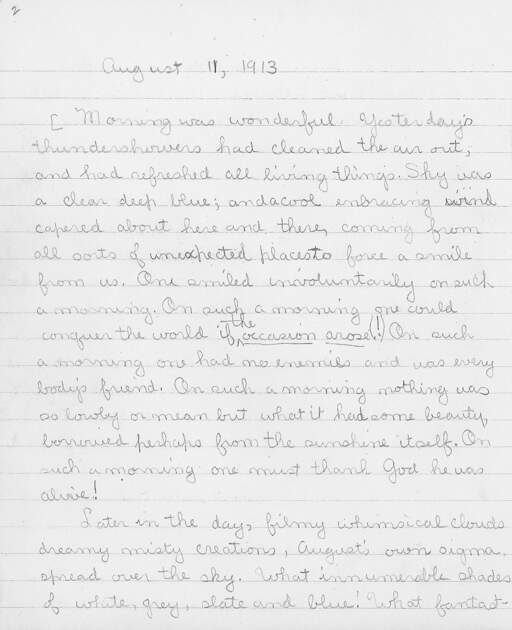 2
August 11, 1913
[ Morning was wonderful. Yesterday's
thundershowers had cleaned the air out,
and had refreshed all living things. Sky was
a clear deep blue; and a cool embracing wind
capered about here and there, coming from
all sorts of unexpected places to force a smile
from us. One smiled involuntarily on such
a morning. On such a morning one could
conquer the world if the occasion arose(!) On such
a morning one had no enemies and was every
body's friend. On such a morning nothing was
so lowly or mean but what it had some beauty,
borrowed perhaps from the sunshine itself. On
such a morning one must thank God he was
alive!
Later in the day, filmy whimsical clouds
dreamy misty creations, August's own sigma,
spread over the sky. What innumerable shades
of white, grey, slate and blue! What fantast-